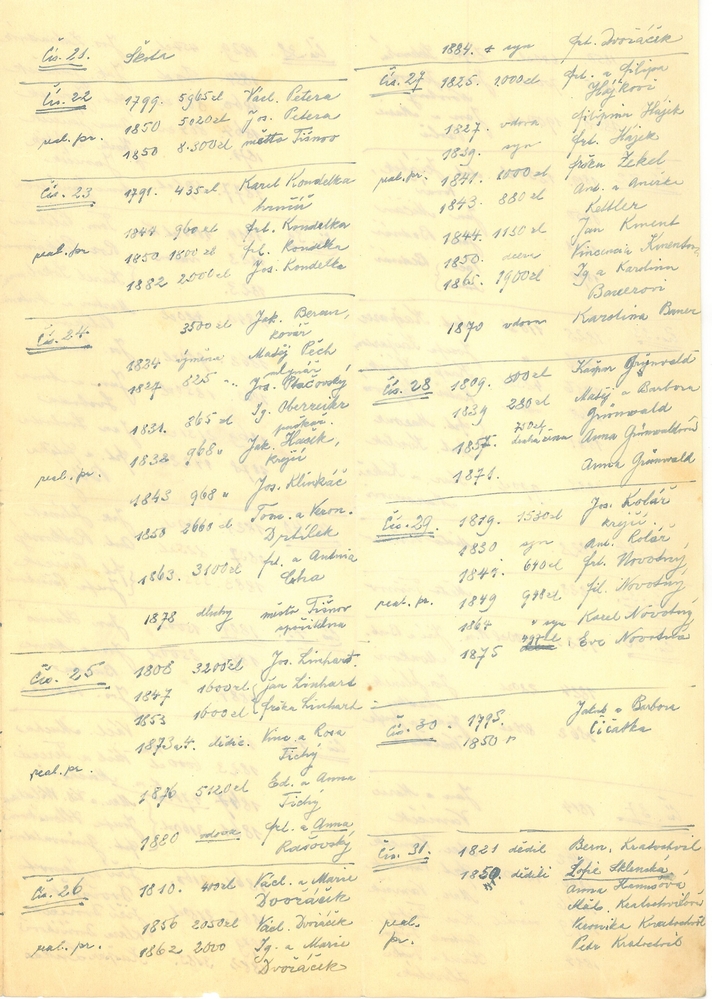 Čís. 21. Škola
Čís. 22 1799. 5965 zl Václ. Petera
1850 5020 zl Jos. Petera
real. pr. 1850 8.300 zl město Tišnov
Čís. 23 1791. 435 zl Karel Kondelka
1844 960 zl frt. Kondelka
real. pr 1850 1800 zl frt. Kondelka
1882 2000 zl Jos. Kondelka
Čís. 24. 3500 zl Jak. Beran,
kovář
1824 výměna Matěj Pěch
mlynář
1827 825 " Jos. Ptačovský
1831. 865 zl Ig.
1832 968 " Jak. Hašek,
krejčí
real. pr.
1843 968 " Jos.
1850 2660 zl Tom. a Veron.
Drtílek
1863. 3100 zl frt. a Antonia
1878 dluhy město Tišnov
spořitelna
Čís. 25 1808 3200 zl Jos. Linhart.
1847 1600 zl Jan Linhart
1853 1600 zl Linhart
1873 dědic. Vinc. a Rosa
Tichý
real. pr.
1876 5120 zl Ed. a Anna
Tichý
1880 vdova frt. a Anna
Rašovský
Čís. 26 1810. 400 zl Václ. a Marie
Dvořáček
1856 2050 zl Václ. Dvořáček
real. pr. 1862 2000 Ig. a Marie
Dvořáček
1884. syn frt. Dvořáček
Čís. 27 1825. 2000 zl frt. a Filipa
Hájkovi
1827. vdova Filipina Hájek
1839. syn frt. Hájek
real. pr. 1841. Žekel
1843. 880 zl Ant. a Anežka
Kettler
1844. 1150 zl Jan Kment
1850. dcera Vincencia Kmentova
1865. 1900 zl Ig. a Karolina
Bauerovi
1870 vdova Karolina Bauer
Čís. 28 1809. 500 zl Kašpar Grünwald
1839 280 zl Matěj a Barbora
Grünwald
1857. Anna Grünwaldová
1871. Anna Grünwald
Čís. 29. 1819. 1530 zl Jos. Kolář
krejčí.
1830 syn Ant. Kolář
1847. 640 zl frt. Novotný,
real. pr. 1849 998 zl fil. Novotný
1864 " syn Karel Novotný
1875 Eva Novotná
Čís. 30. 1795. Jakub a Barbora
1850 Čičatka
Čís. 31. 1821 dědil Bern. Kratochvil
1850 dědili Žofie Sklenská
Anna Hamsová
Mat. Kratochvilová
real. Veronika Kratochvil
pr. Petr Kratochvil